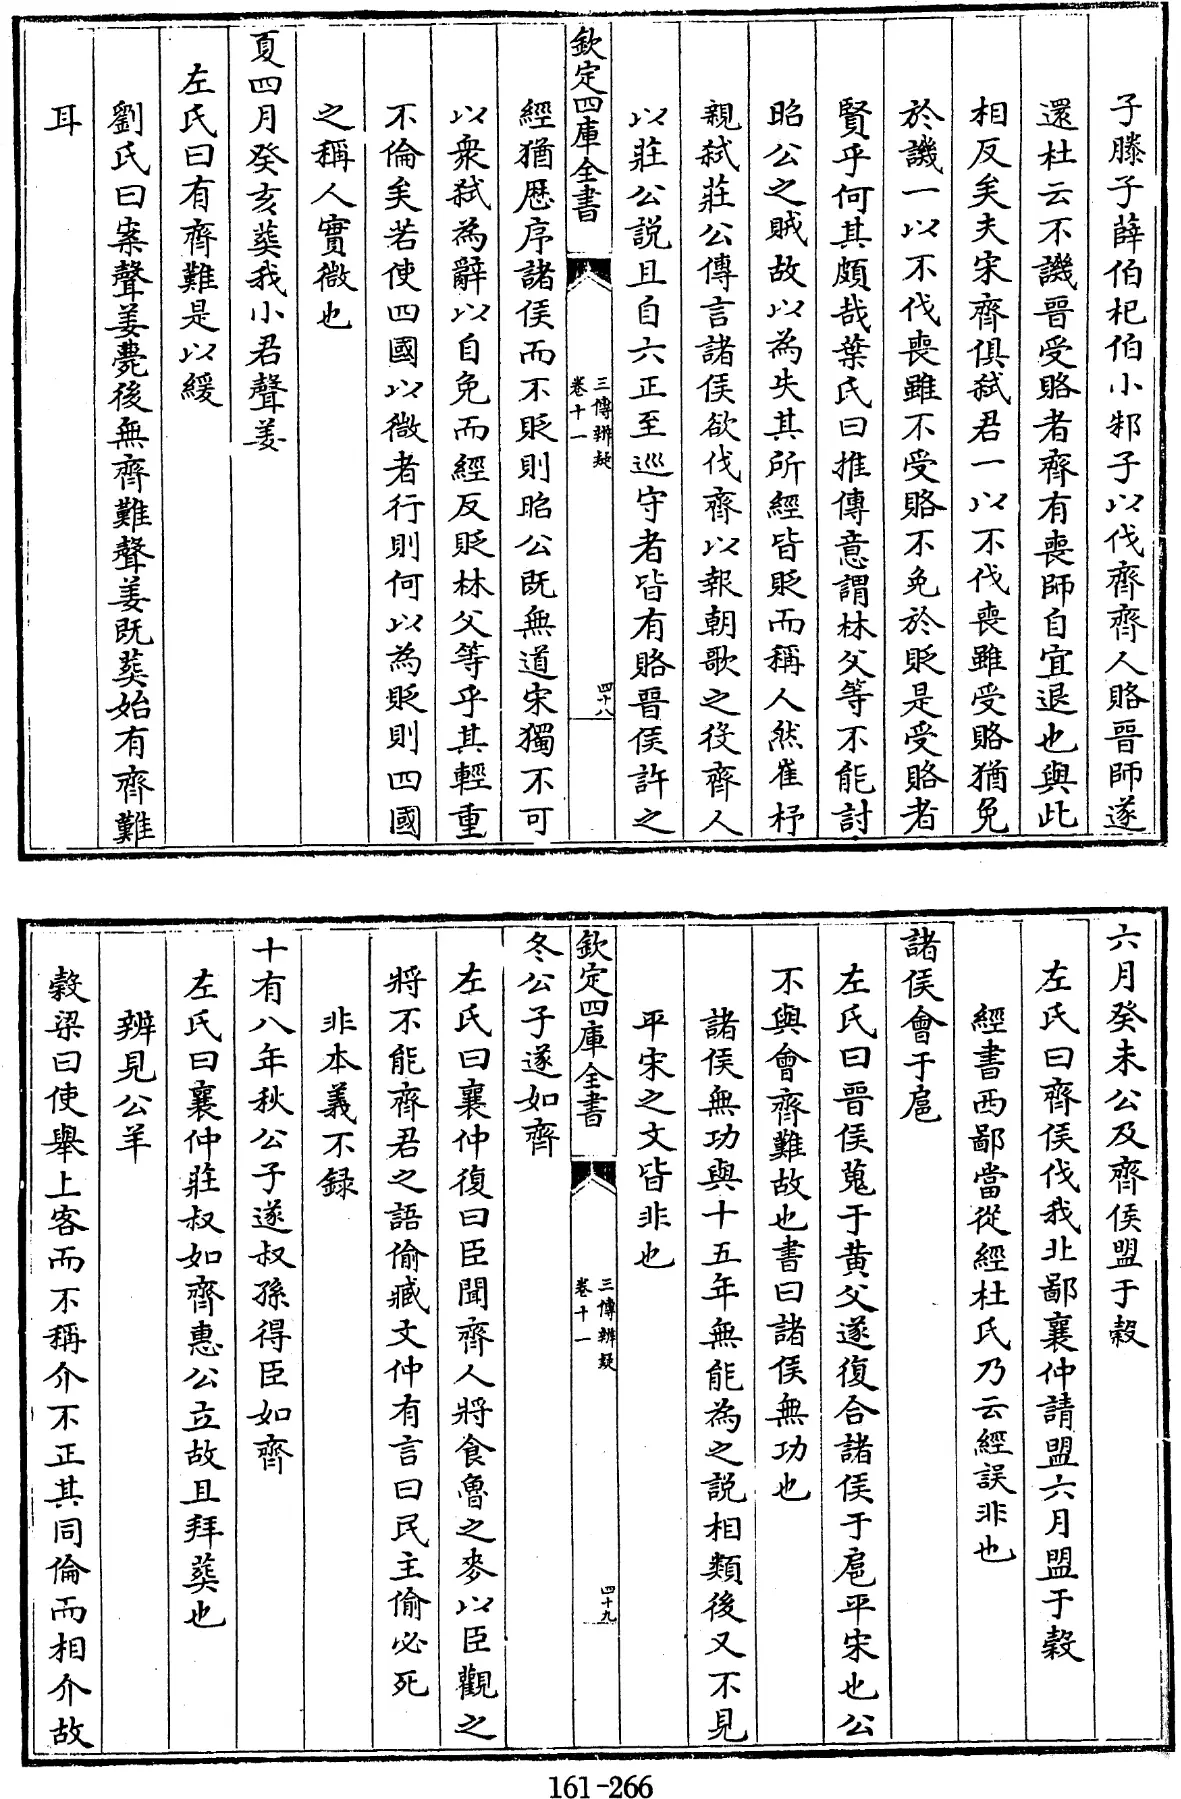 子滕子薛伯杞伯小邾子以伐齊齊人賂晉師遂
還杜云不譏晉受賂者齊有喪師自宜退也與此
相反矣夫宋齊俱弑君一以不伐喪雖受賂猶免
於譏一以不伐喪雖不受賂不免於貶是受賂者
賢乎何其頗哉葉氏曰推傳意謂林父等不能討
昭公之賊故以為失其所經皆貶而稱人然崔杼
親弑莊公傳言諸侯欲伐齊以報朝歌之役齊人
以莊公説且自六正至廵守者皆有賂晉侯許之
欽定四庫全書
三傳辨疑
卷十一
四十八
經猶歴序諸侯而不貶則昭公既無道宋獨不可
以衆弑為辭以自免而經反貶林父等乎其輕重
不倫矣若使四國以微者行則何以為貶則四國
之稱人實微也
夏四月癸亥葬我小君聲姜
左氏曰有齊難是以緩
劉氏曰案聲姜薨後無齊難聲姜既葬始有齊難
耳
六月癸未公及齊侯盟于榖
左氏曰齊侯伐我北鄙襄仲請盟六月盟于榖
經書西鄙當從經杜氏乃云經誤非也
諸侯會于扈
左氏曰晉侯蒐于黄父遂復合諸侯于扈平宋也公
不與會齊難故也書曰諸侯無功也
諸侯無功與十五年無能為之説相類後又不見
平宋之文皆非也
欽定四庫全書
三傳辨疑
卷十一
四十九
冬公子遂如齊
左氏曰襄仲復曰臣聞齊人將食魯之麥以臣觀之
將不能齊君之語偷臧文仲有言曰民主偷必死
非本義不録
十有八年秋公子遂叔孫得臣如齊
左氏曰襄仲莊叔如齊惠公立故且拜葬也
辨見公羊
榖梁曰使舉上客而不稱介不正其同倫而相介故
161-266